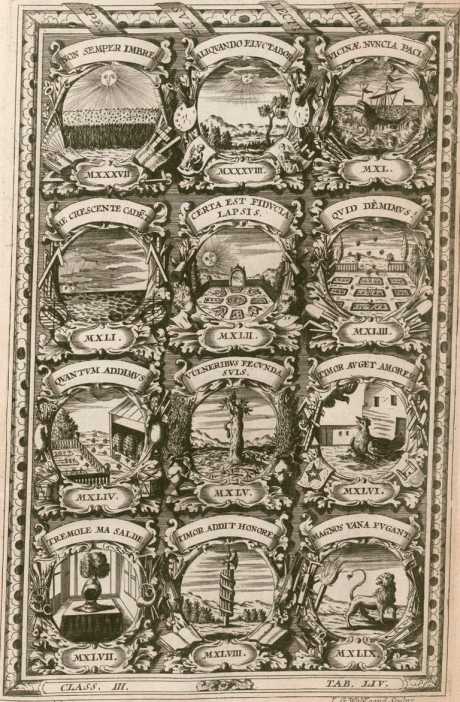 SPE
TIMOR
NON SEMPER IMBRE
ALIQUANDO ELUCTABOR
VICINÆ NUNCIA PACI
MXXXVII
MXXXVIII.
MXL.
RE CRESCENTE CADĒ
CERTA EST FIDUCIA
LAPSIS.
QUID DĒMIMUS?
MXLI.
MXLII.
MXLIII.
QUANTUM ADDIMUS
VULNERIBUS FECUNDA
SUIS.
TIMOR AUGET AMORE
MXLIV.
MXLV.
MXLVI.
TREMOLE MA SALDE
TIMOR ADDIT HONORE
MAGNOS VANA FUGANT
MXLVII.
MXLVIII.
MXLIX.
CLASS. III.
TAB. LIV.